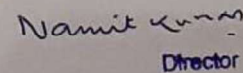 Namit Kumar
Director